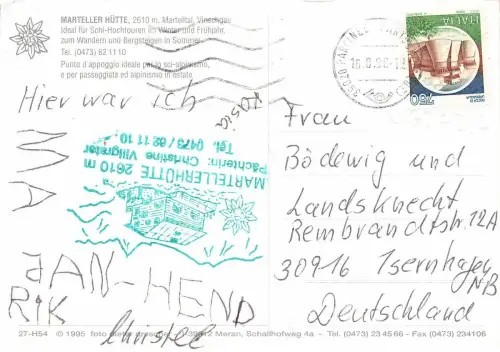 MARTELLER HÜTTE, 2610 m. Martelltal, Vinschgau
Ideal für Schi-Hochtouren im Winter und Frühjahr,
zum Wandern und Bergsteigen in Sommer
Tel. (0473) 821110
Punto d'appoggio ideale per lo sci-alpinismo,
e per passeggiate ed alpinismo in estate
Hier war ich
MA
JAN-HEND
RIK
Christel
MARTELLERHÜTTE 2610 m
Pächterin: Christine Villgrater
Tel. 0473 / 82 11 10
ITALIA
750
Frau
Bödewig und
Landsknecht
Rembrandtstr. 12A
30916 Isernhagen
NB
Deutschland
27-H54 © 1995 foto 39012 Meran, Schallhofweg 4a - Tel. (0473) 234566 - Fax (0473) 234106